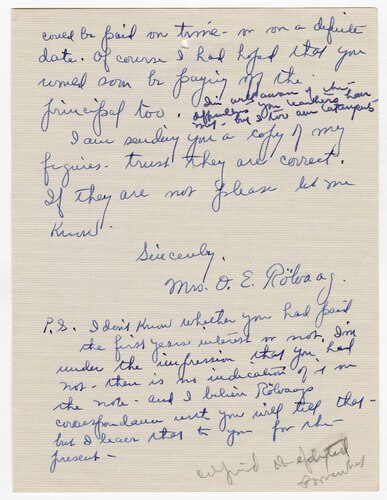 could be paid on time - or on a definite
date. Of course I had hoped that you
would soon be paying off the
principal too. I'm not unaware of the
difficulties you teachers have
met - but I too am
I am sending you a copy of my
figures - trust they are correct.
If they are not please let me
know.
Sincerely,
Mrs. O. E. Rölvaag.
P.S. I don't know whether you had paid
the first years interest or not. I'm
under the impression that you had
not - there is no indication of it on
the note - and I believe Rölvaags
correspondence with you will tell that -
but I leave that to you for the
present -